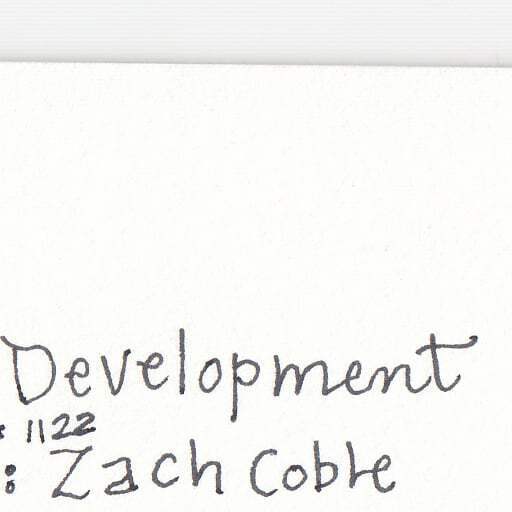 Development
: 1122
: Zach Coble